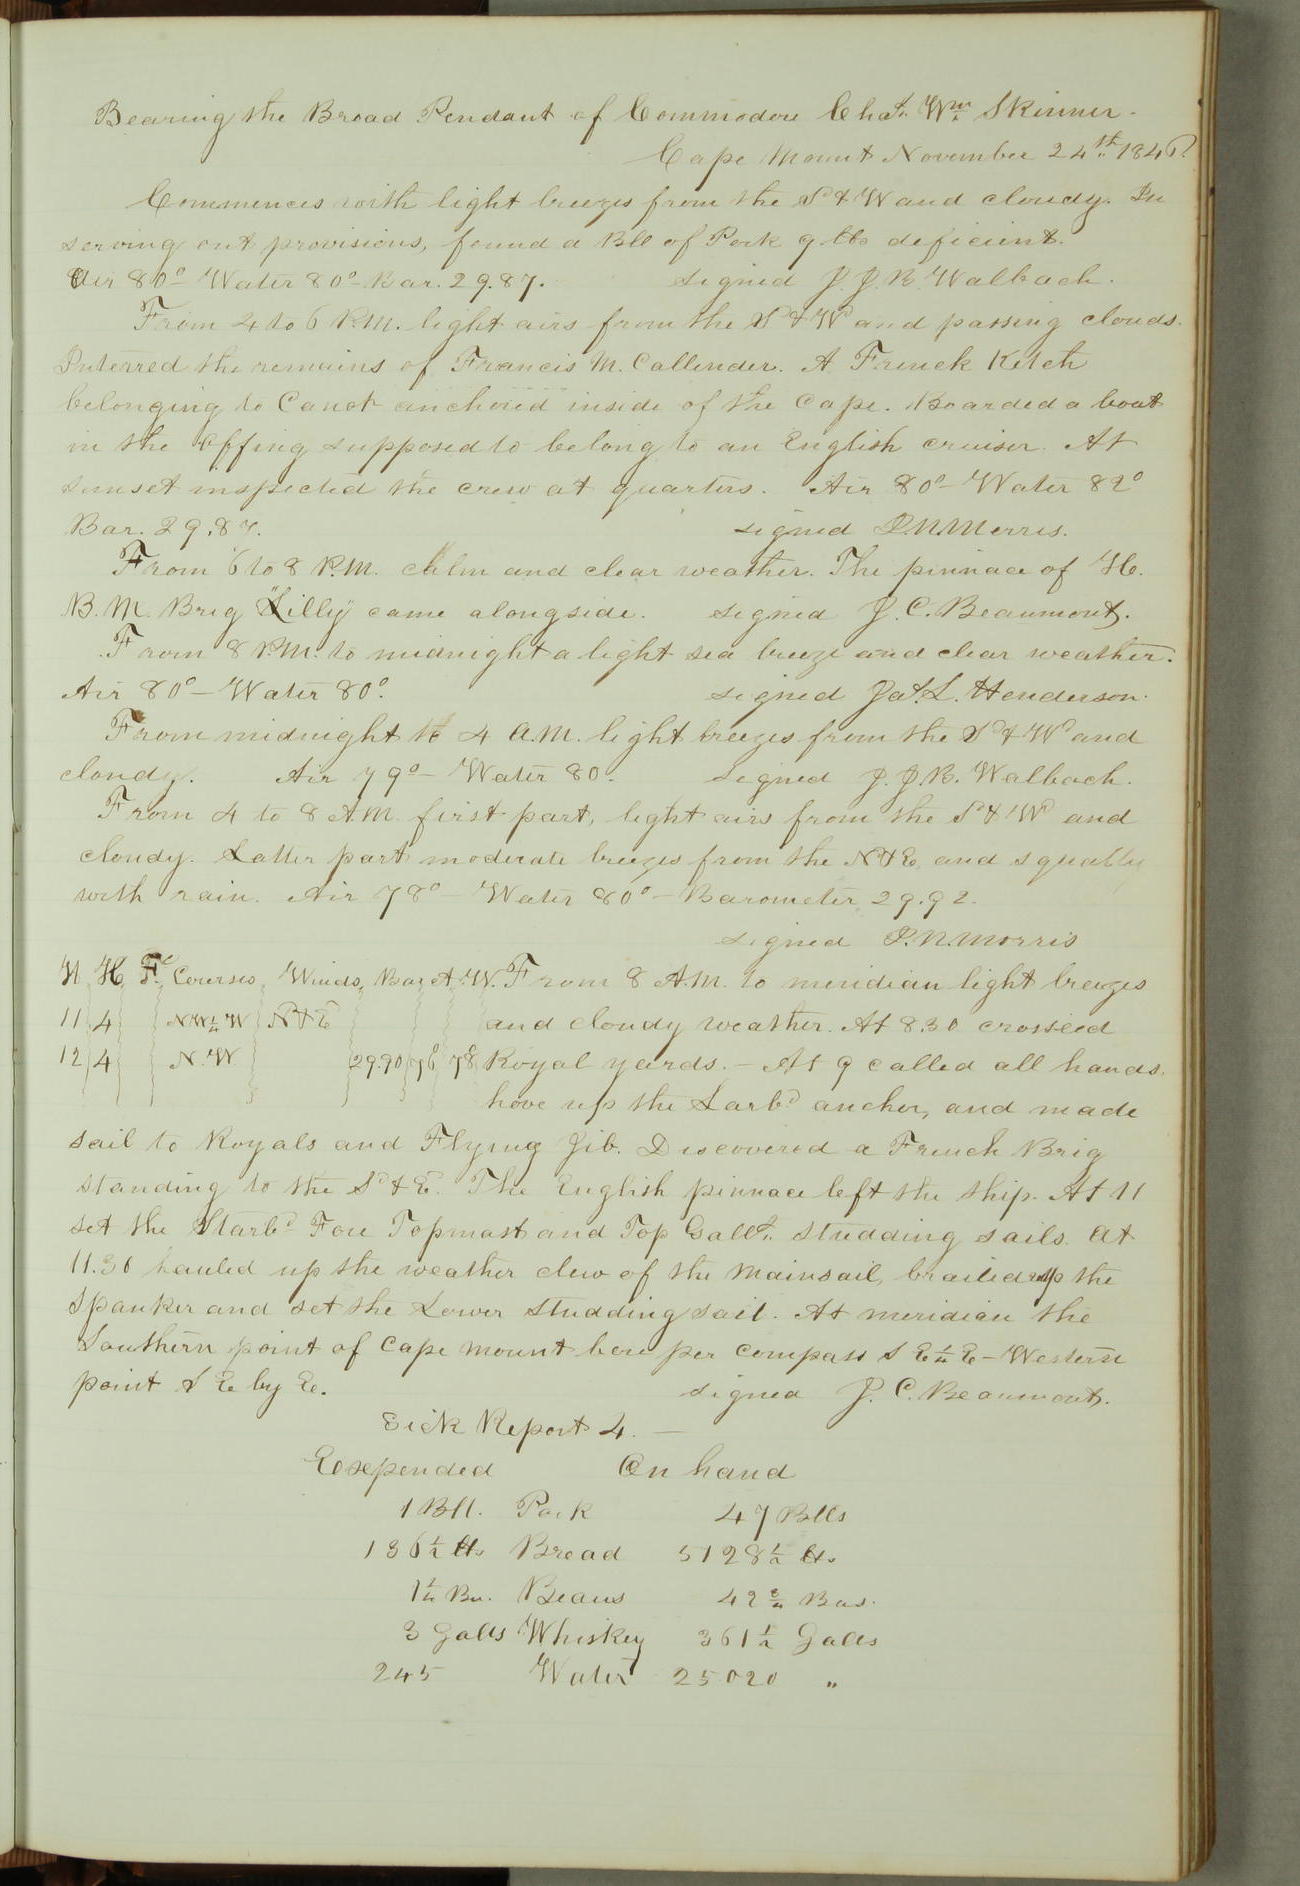 Bearing the Broad Pendant of Commodore Chas. Wm. Skinner.
Cape Mount November 24th 1845.
Commences with light breezes from the Sd & Wd and cloudy. In
serving out provisions, found a Bll of Pork 9 lbs deficient.
Air 80° – Water 80° – Bar. 29.87. signed J. J. B. Walbach.
From 4 to 6 P.M. light airs from the Sd & Wd and passing clouds.
Interred the remains of Francis M. Callender. A French Ketch
belonging to Canot anchored inside of the Cape. Boarded a boat
in the Offing supposed to belong to an English cruiser. At
sunset inspected the crew at quarters. Air 80° – Water 82°
Bar. 29.87. signed P. N. Morris.
From 6 to 8 P.M. calm and clear weather. The pinnace of H.
B. M. Brig "Lilly" came alongside. signed J. C. Beaumont.
From 8 P.M. to midnight a light sea breeze and clear weather.
Air 80° – Water 80°. signed Jas. L. Henderson.
From midnight to 4 A.M. light breezes from the Sd & Wd and
cloudy. Air 79° – Water 80. signed J. J. B. Walbach.
From 4 to 8 A.M. first part, light airs from the Sd & Wd and
cloudy. Latter part moderate breezes from the N & E and squally
with rain. Air 78° – Water 80° – Barometer 29.92.
signed P. N. Morris
H K F Courses Winds Bar A. W. From 8 A.M. to meridian light breezes
11 4 NW½W Nd & E and cloudy weather. At 8.30 crossed
12 4 N.W 29.90 76 78 Royal yards. – At 9 called all hands,
hove up the Larbd anchor, and made
sail to Royals and Flying Jib. Discovered a French Brig
standing to the Sd & E. The English pinnace left the ship. At 11
set the Starbd Fore Topmast and Top Gallt. studding sails. At
11.30 hauled up the weather clew of the Mainsail, brailed up the
Spanker and set the Lower studding sail. At meridian the
Southern point of Cape Mount bore per compass S E ½ E – Western
point S E by E. signed J. C. Beaumont.
Sick Report 4. –
Expended On hand
1 Bll. Pork 47 Blls
136½ lbs Bread 5128½ lbs
1¼ Bu. Beans 42 Bus.
3 Galls Whiskey 361½ Galls
245 Water 25020 "